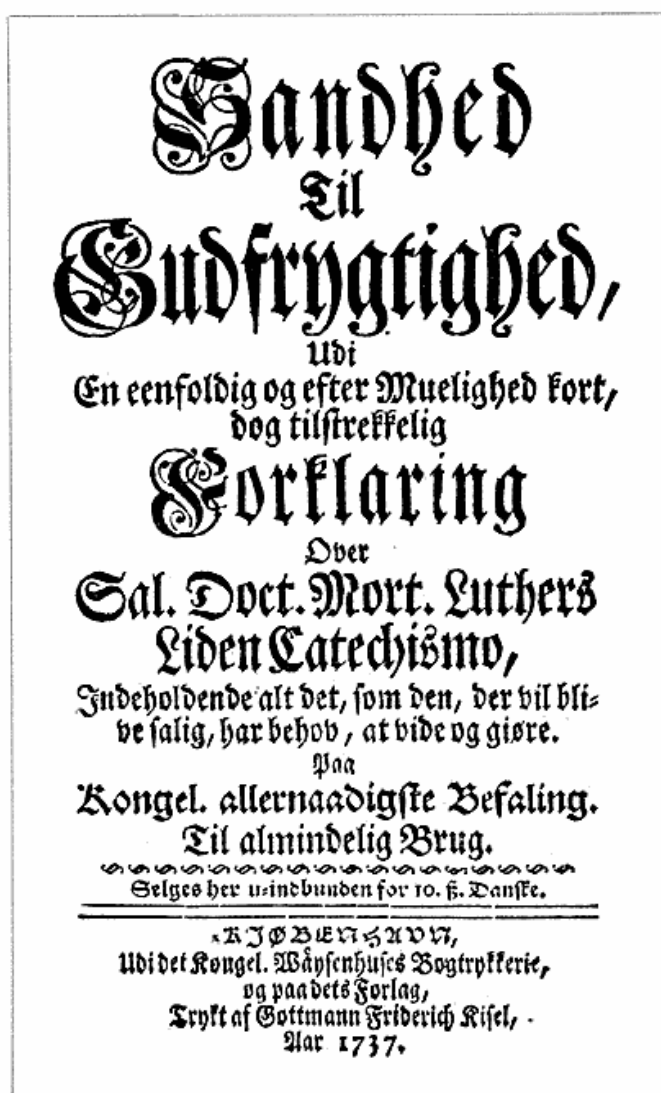 Sandhed
Til
Gudfrygtighed,
Udi
En eenfoldig og efter Muelighed kort,
dog tilstrekkelig
Forklaring
Over
Sal. Doct. Mort. Luthers
Liden Catechismo,
Indeholdende alt det, som den, der vil bli-
ve salig, har behov, at vide og giøre.
Paa
Kongel. allernaadigste Befaling.
Til almindelig Brug.
Selges her u-indbunden for 10. ß. Danske.
KJØBENHAVN,
Udi det Kongel. Wäysenhuses Bogtrykkerie,
og paa dets Forlag,
Trykt af Gottmann Friderich Kisel,
Aar 1737.